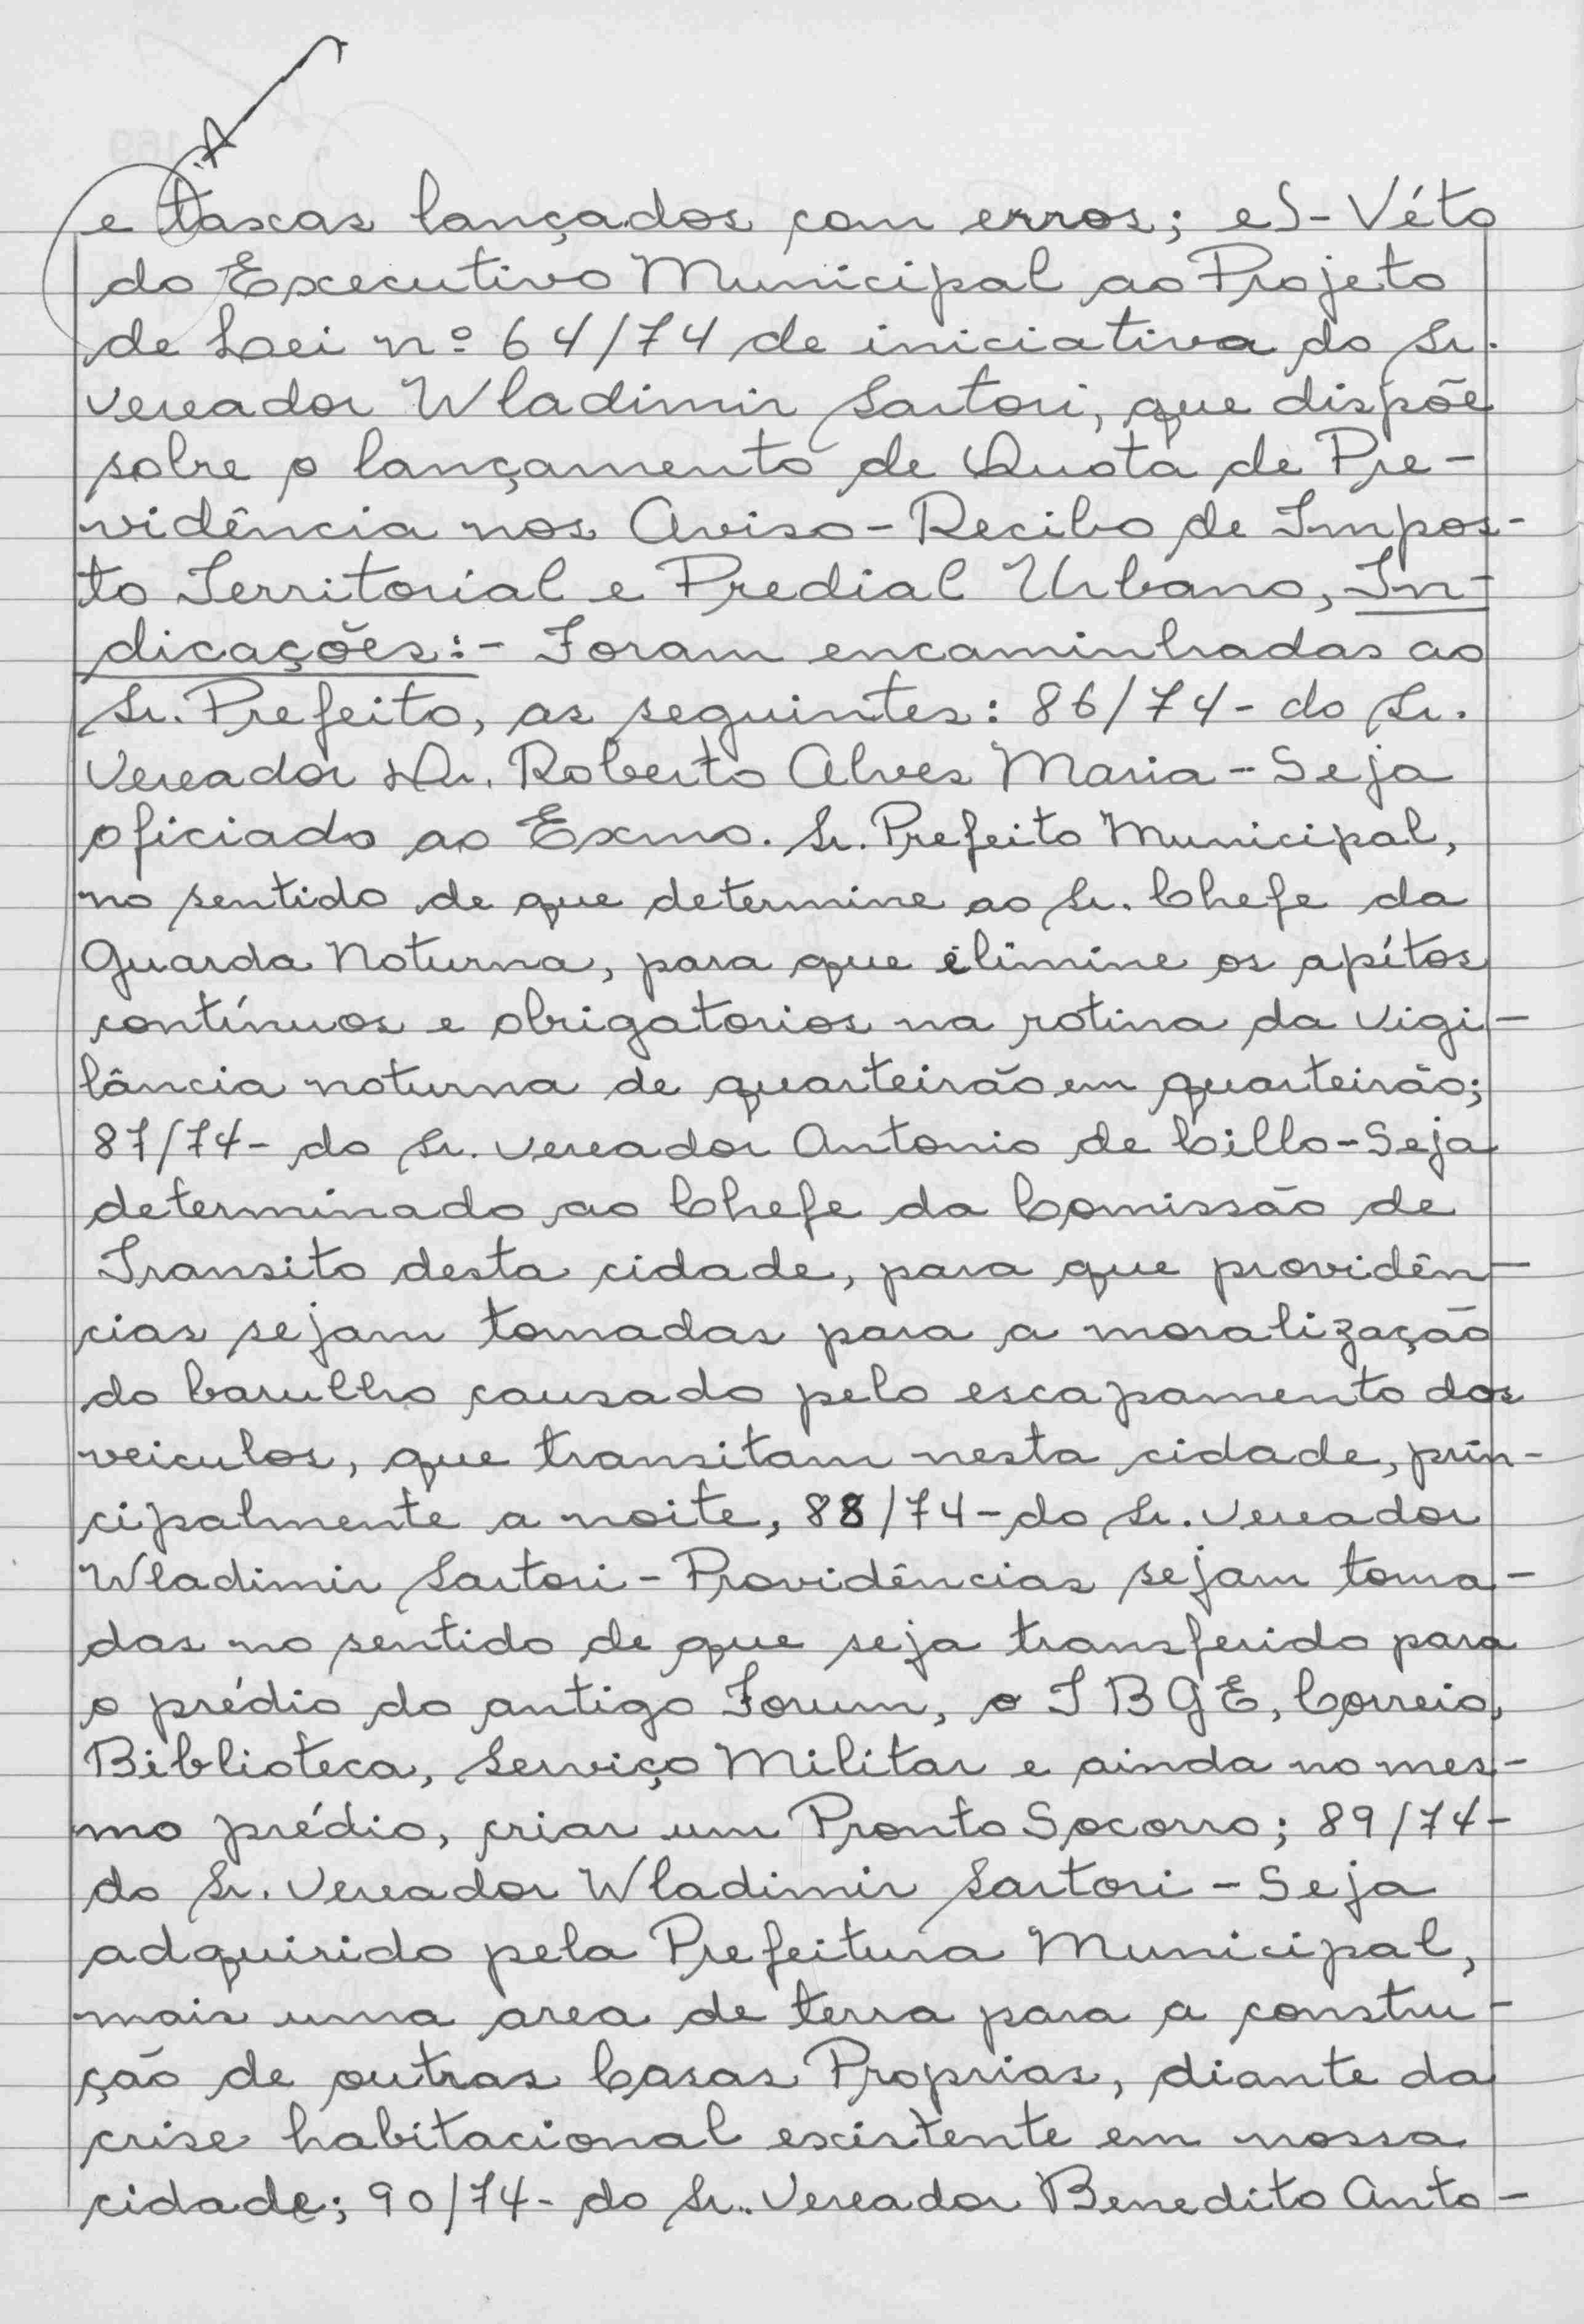 e taxas lançados com erros; e)- Véto
do Executivo Municipal ao Projeto
de Lei nº 64/74 de iniciativa do Sr.
Vereador Wladimir Sartori, que dispõe
sobre o lançamento de Quota de Pre-
vidência nos Aviso-Recibo de Impos-
to Territorial e Predial Urbano, In-
dicações:- Foram encaminhadas ao
Sr. Prefeito, as seguintes: 86/74- do Sr.
Vereador Dr. Roberto Alves Maria - Seja
oficiado ao Exmo. Sr. Prefeito Municipal,
no sentido de que determine ao Sr. Chefe da
Guarda Noturna, para que elimine os apítos
contínuos e obrigatorios na rotina da vigi-
lância noturna de quarteirão em quarteirão;
87/74- do Sr. Vereador Antonio de Cillo-Seja
determinado ao Chefe da Comissão de
Transito desta cidade, para que providên-
cias sejam tomadas para a moralização
do barulho causado pelo escapamento dos
veiculos, que transitam nesta cidade, prin-
cipalmente a noite, 88/74-do Sr. Vereador
Wladimir Sartori - Providências sejam toma-
das no sentido de que seja transferido para
o prédio do antigo Forum, o IBGE, Correio,
Biblioteca, Serviço Militar e ainda no mes-
mo prédio, criar um Pronto Socorro; 89/74-
do Sr. Vereador Wladimir Sartori - Seja
adquirido pela Prefeitura Municipal,
mais uma area de terra para a constru-
ção de outras Casas Proprias, diante da
crise habitacional existente em nossa
cidade; 90/74- do Sr. Vereador Benedito Anto-